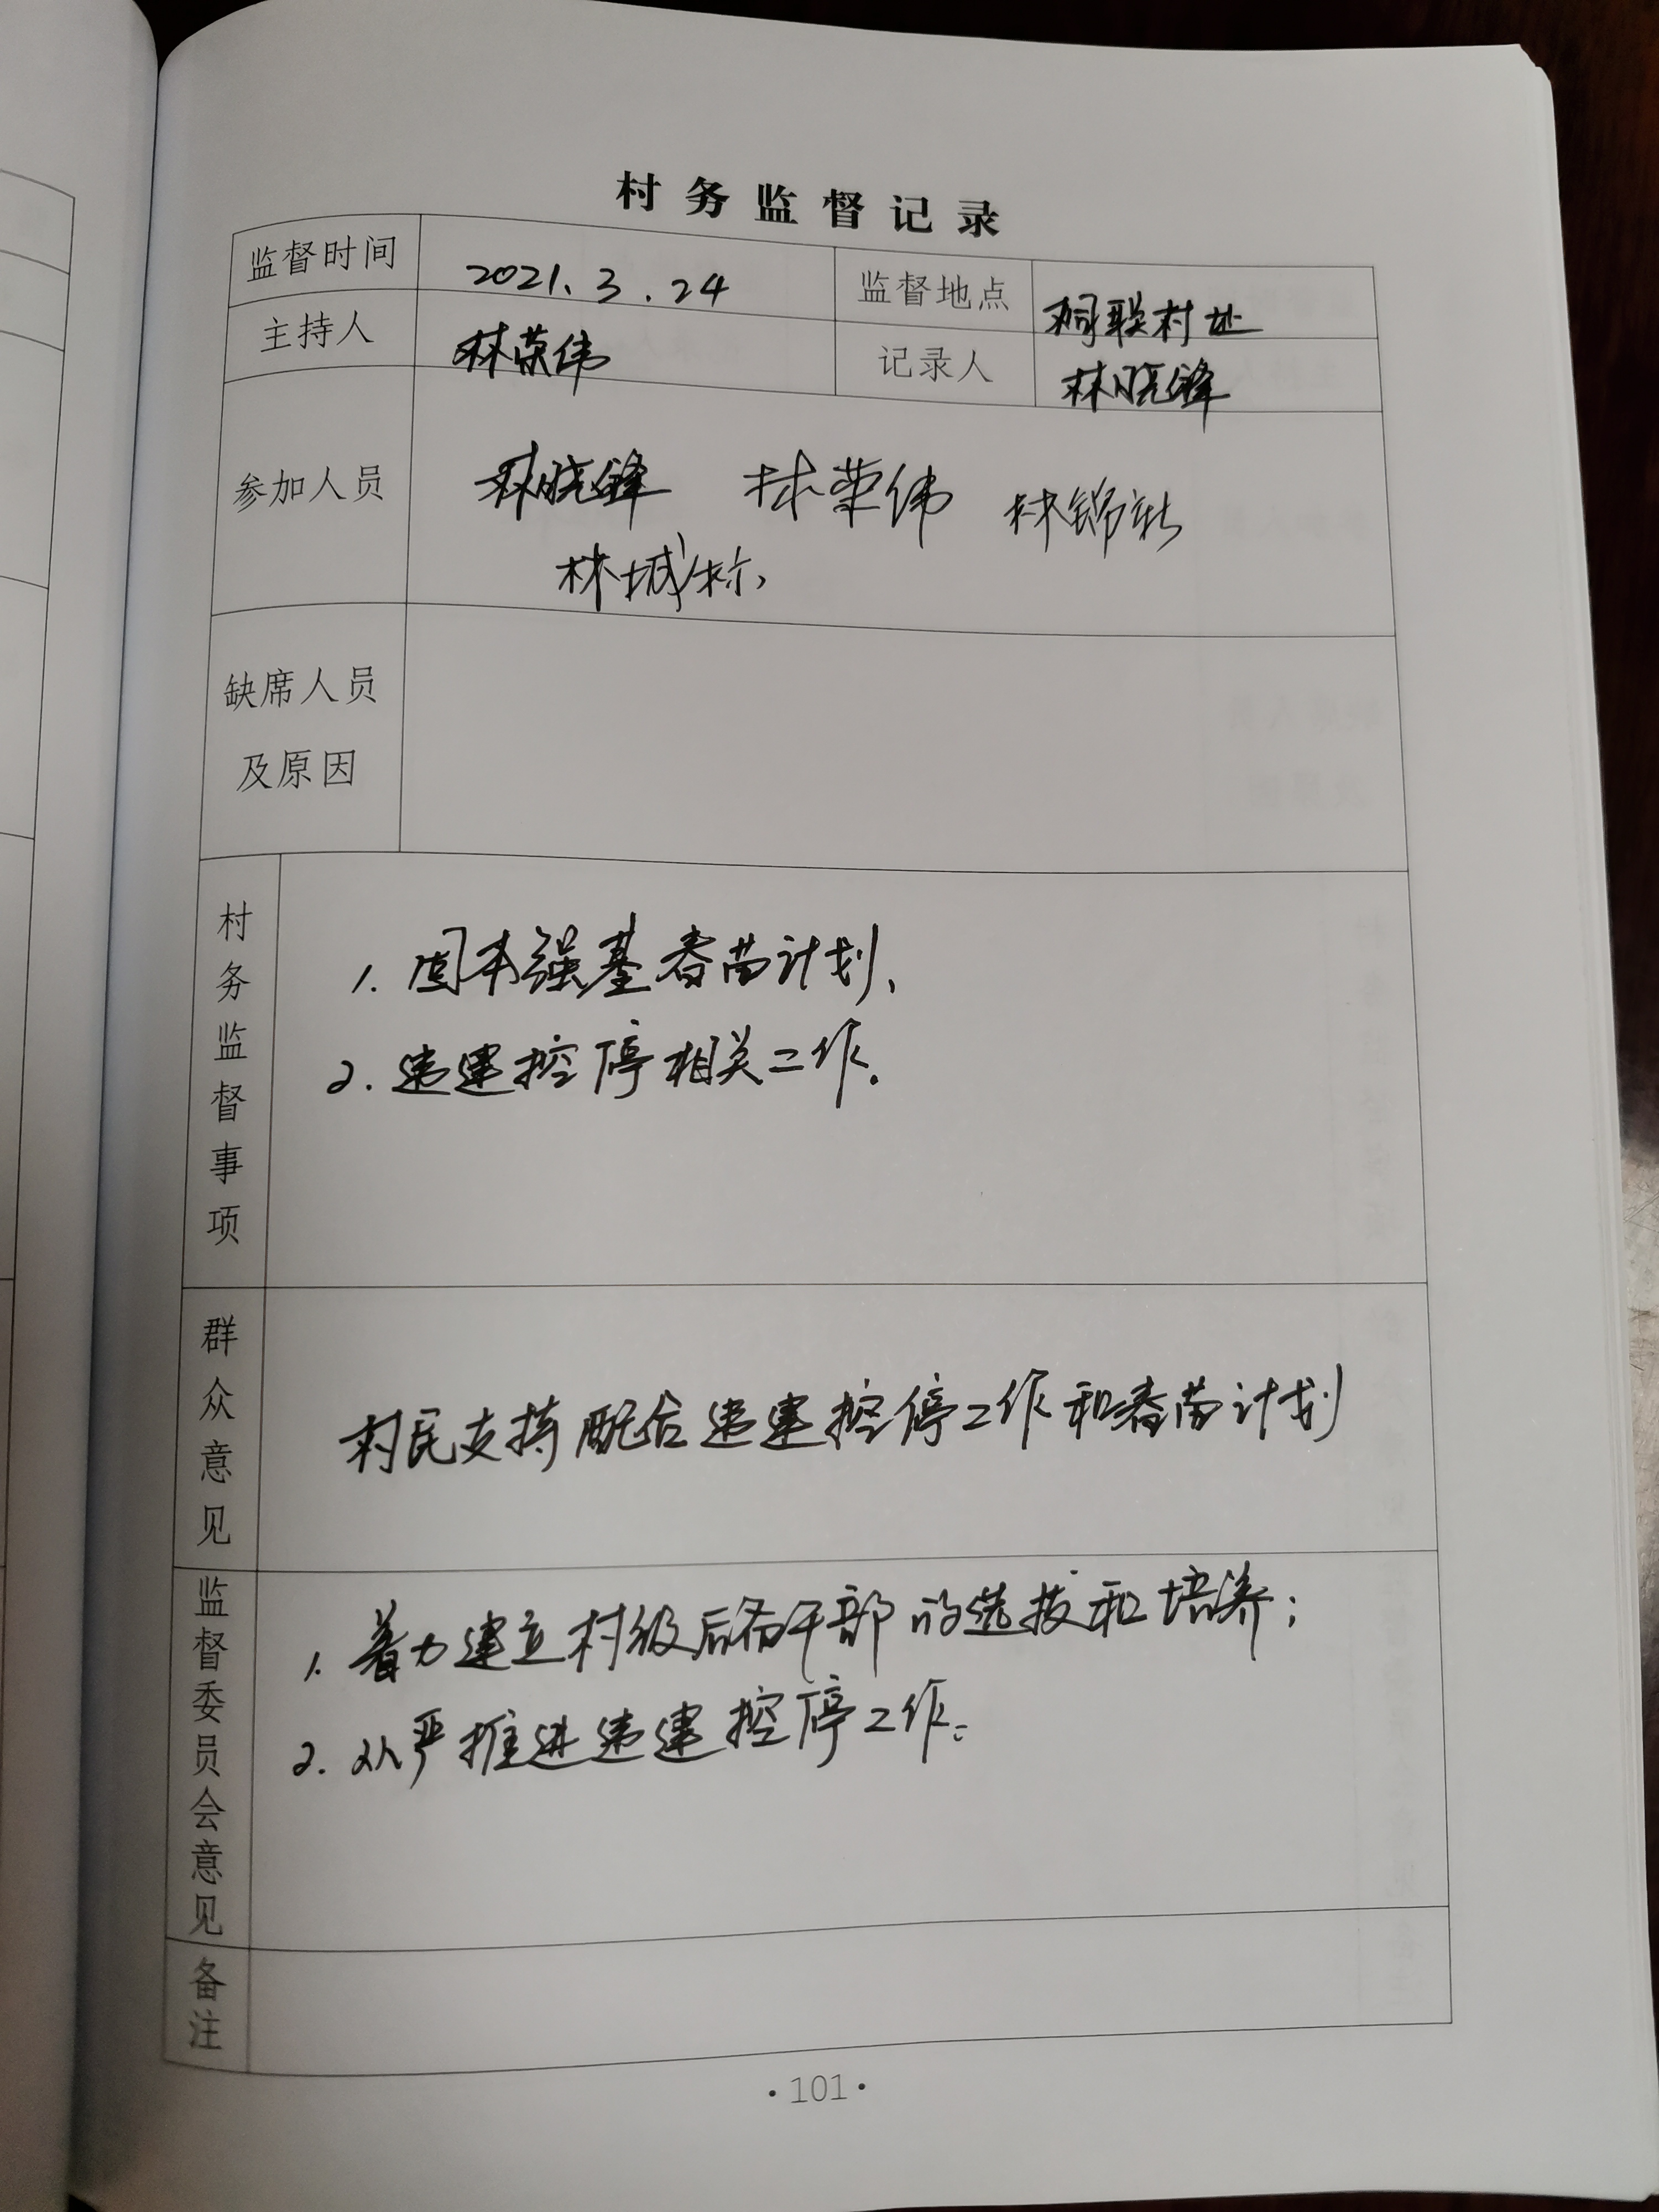 村务监督记录
监督时间 2021.3.24 监督地点 桐联村址
主持人 林荣伟 记录人 林晓锋
参加人员 林晓锋 林荣伟 林锦新
林城标
缺席人员
及原因
村务监督事项
1. 固本强基春苗计划、
2. 违建控停相关工作.
群众意见
村民支持配合违建控停工作和春苗计划
监督委员会意见
1. 着力建立村级后备干部的选拔和培养;
2. 从严推进违建控停工作。
备注
·101·